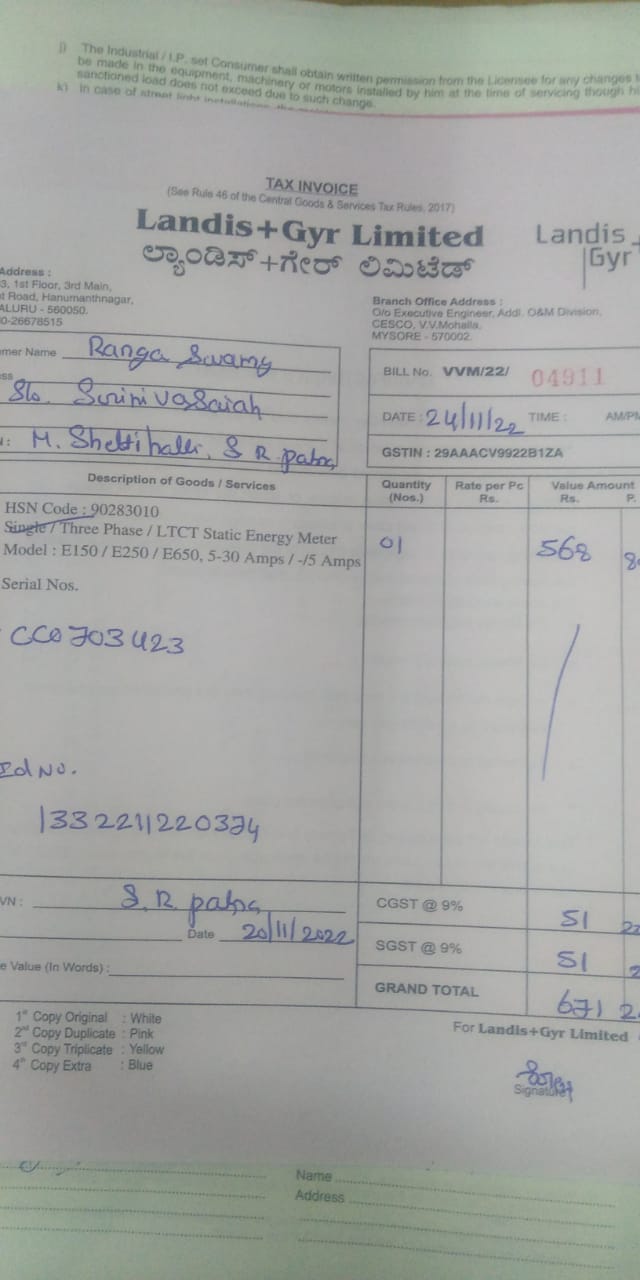 j) The Industrial / I.P. set Consumer shall obtain written permission from the Licensee for any changes t
be made in the equipment, machinery or motors installed by him at the time of servicing though hi
sanctioned load does not exceed due to such change.
k) In case of street light installations, the
TAX INVOICE
(See Rule 46 of the Central Goods & Services Tax Rules, 2017)
Landis+Gyr Limited
Landis+
Gyr
ಲ್ಯಾಂಡಿಸ್+ಗೇರ್ ಲಿಮಿಟೆಡ್
Address :
3, 1st Floor, 3rd Main,
t Road, Hanumanthnagar,
ALURU - 560050.
0-26678515
Branch Office Address :
O/o Executive Engineer, Addl. O&M Division,
CESCO, V.V.Mohalla,
MYSORE - 570002.
mer Name Ranga Swamy
ss S/o. Srinivasaiah
: M. Shettihalli, S R patna
BILL No. VVM/22/ 04911
DATE : 24/11/22 TIME : AM/PM
GSTIN : 29AAACV9922B1ZA
Description of Goods / Services Quantity (Nos.) Rate per Pc Rs. Value Amount Rs. P.
HSN Code : 90283010
Single / Three Phase / LTCT Static Energy Meter
Model : E150 / E250 / E650, 5-30 Amps / -/5 Amps 01 568 8
Serial Nos.
CC0703423
Ed No.
1332211220374
VN : S. R. patna
Date 20/11/2022
e Value (In Words) :
CGST @ 9% 51 2
SGST @ 9% 51 2
GRAND TOTAL 671 2
1st Copy Original : White
2nd Copy Duplicate : Pink
3rd Copy Triplicate : Yellow
4th Copy Extra : Blue
For Landis+Gyr Limited
Signature
Name
Address